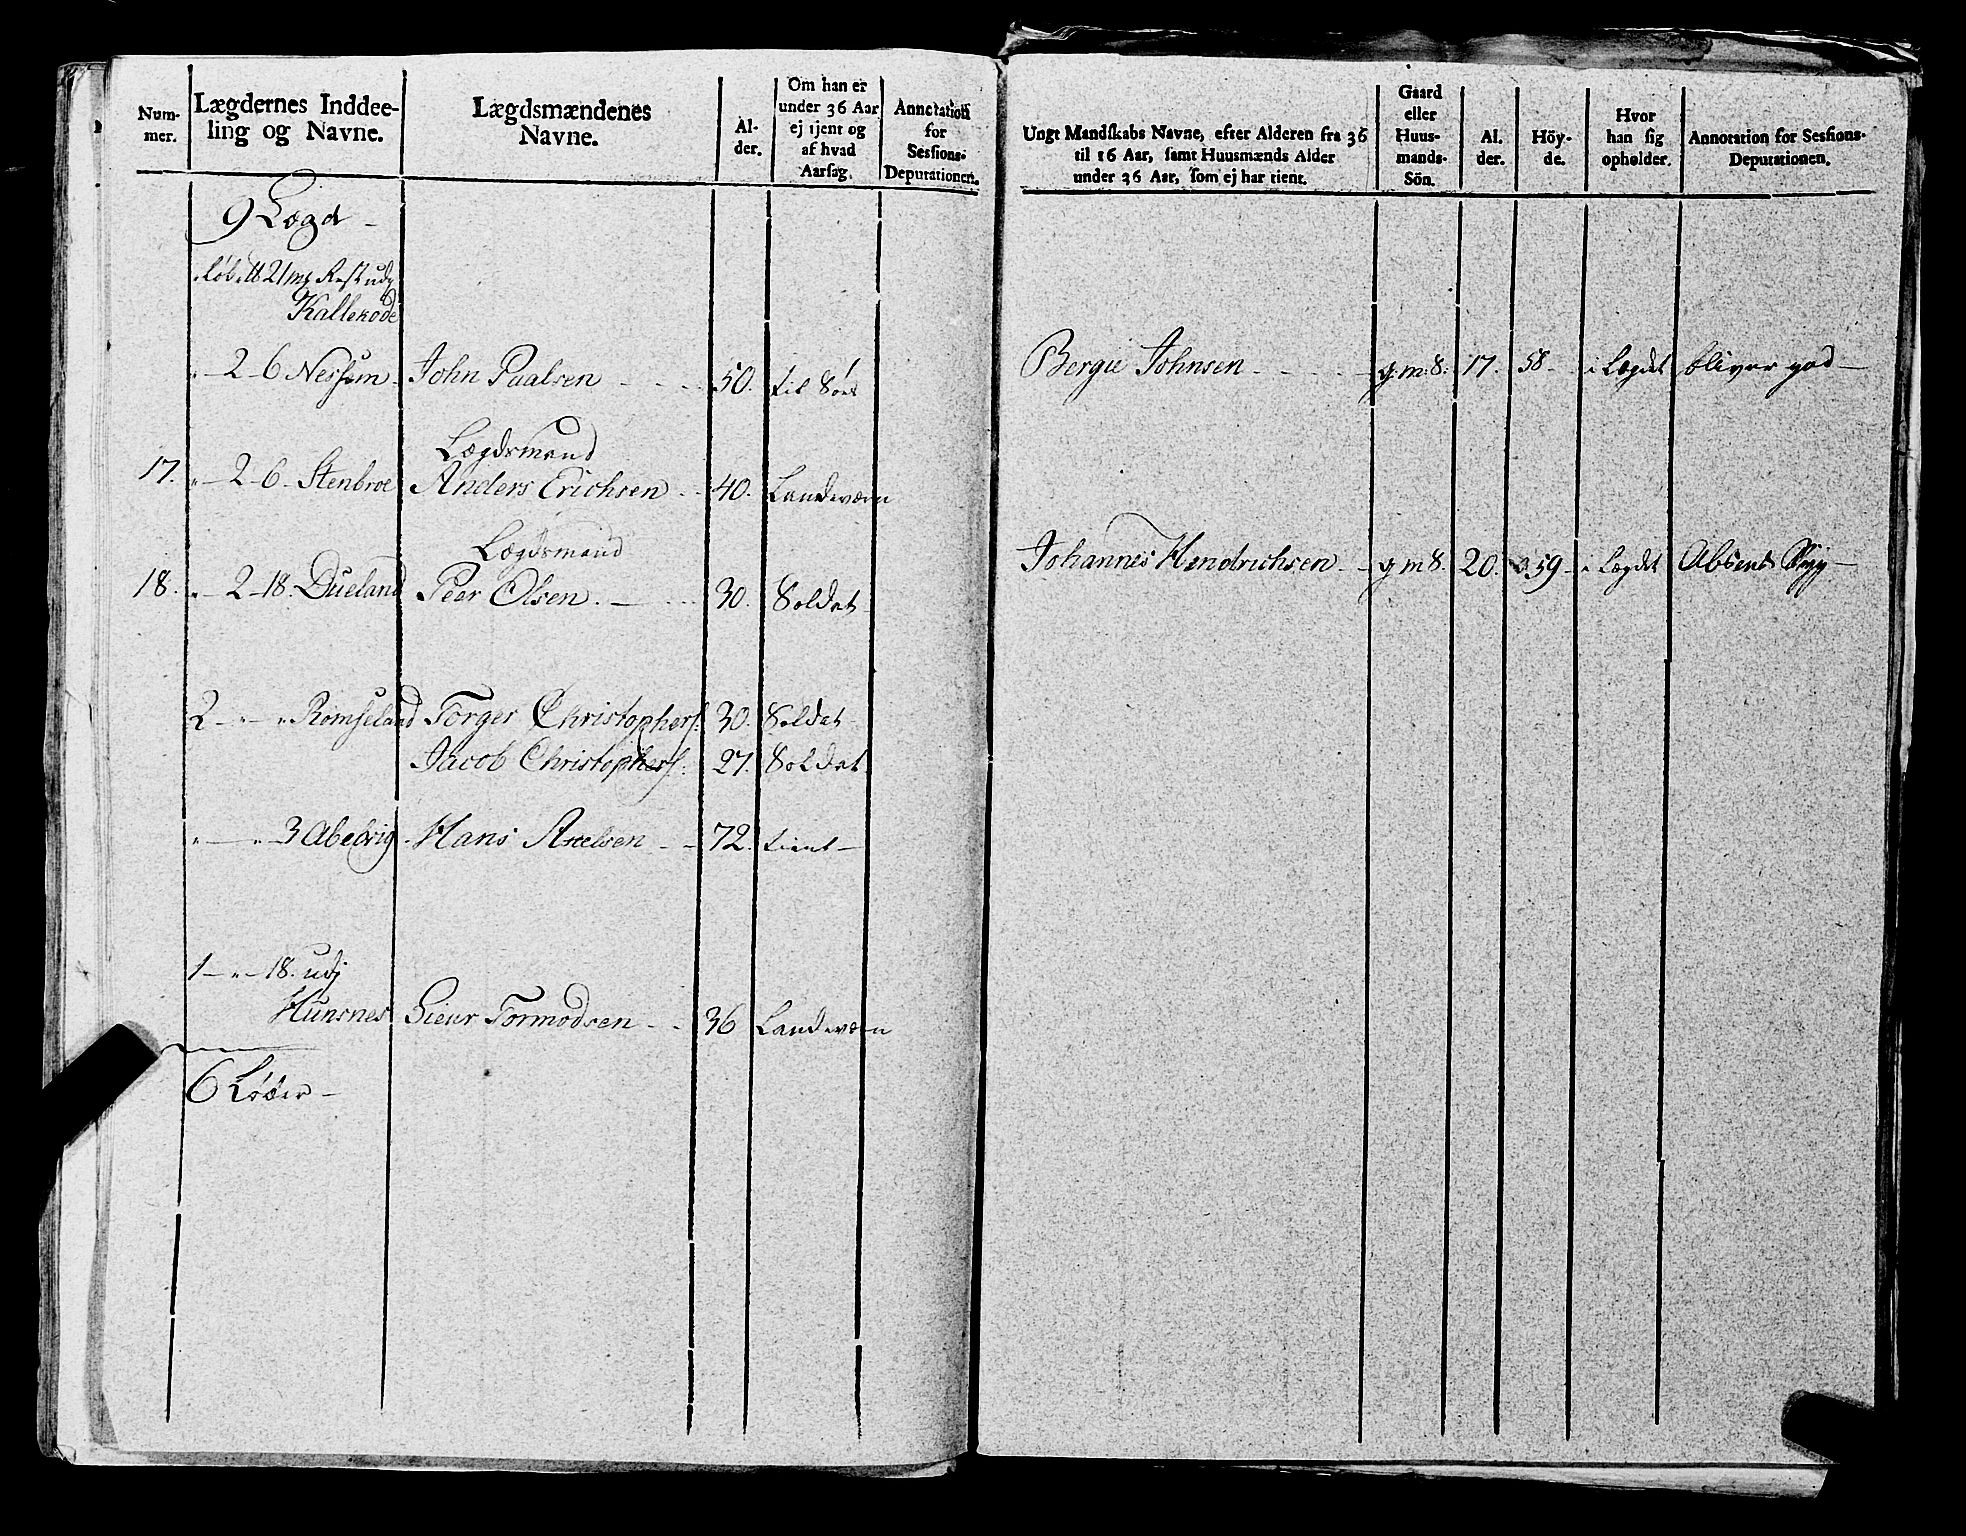 Num-
mer.
Lægdernes Inddee-
ling og Navne.
Lægdsmændenes
Navne.
Al-
der.
Om han er
under 36 Aar
ej tjent og
af hvad
Aarsag.
Annotation
for
Sessions-
Deputationen.
9 Lægd
21 mk Rest udj
Kallekode
2-6 Nessum John Paalsen 50. til Søes
Lægdsmand
17. 2-6- Stenbroe Anders Erichsen 40. Landeværn
Lægdsmand
18. 2-18. Dueland Peer Olsen. 30. Soldat
2 Romseland Torger Christophers: 30. Soldat
Jacob Christophers: 27. Soldat
3 Abelvig Hans Axelsen 72. tient
1 - 18. udj
Hunsnes Sieur Tormodsen 36 Landeværn
6 Løber
Ungt Mandskabs Navne, efter Alderen fra 36
til 16 Aar, samt Huusmænds Alder
under 36 Aar, som ej har tient.
Gaard
eller
Huus-
mands-
Sön.
Al.
der.
Höy-
de.
Hvor
han sig
opholder.
Annotation for Sessions-
Deputationen.
Bergie Johnsen g: m: 8: 17. 58 i Lægdet bliver god
Johannes Hendrichsen g m 8. 20. 59 i Lægdet Absent